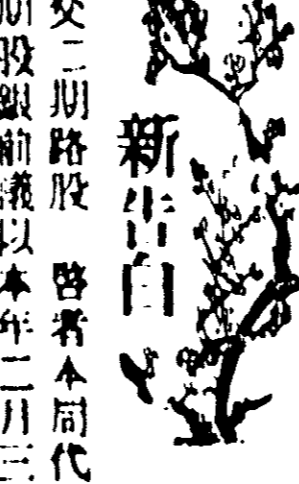 新告白
交二期路股 啓者本同代
期股銀前議以本年二月三